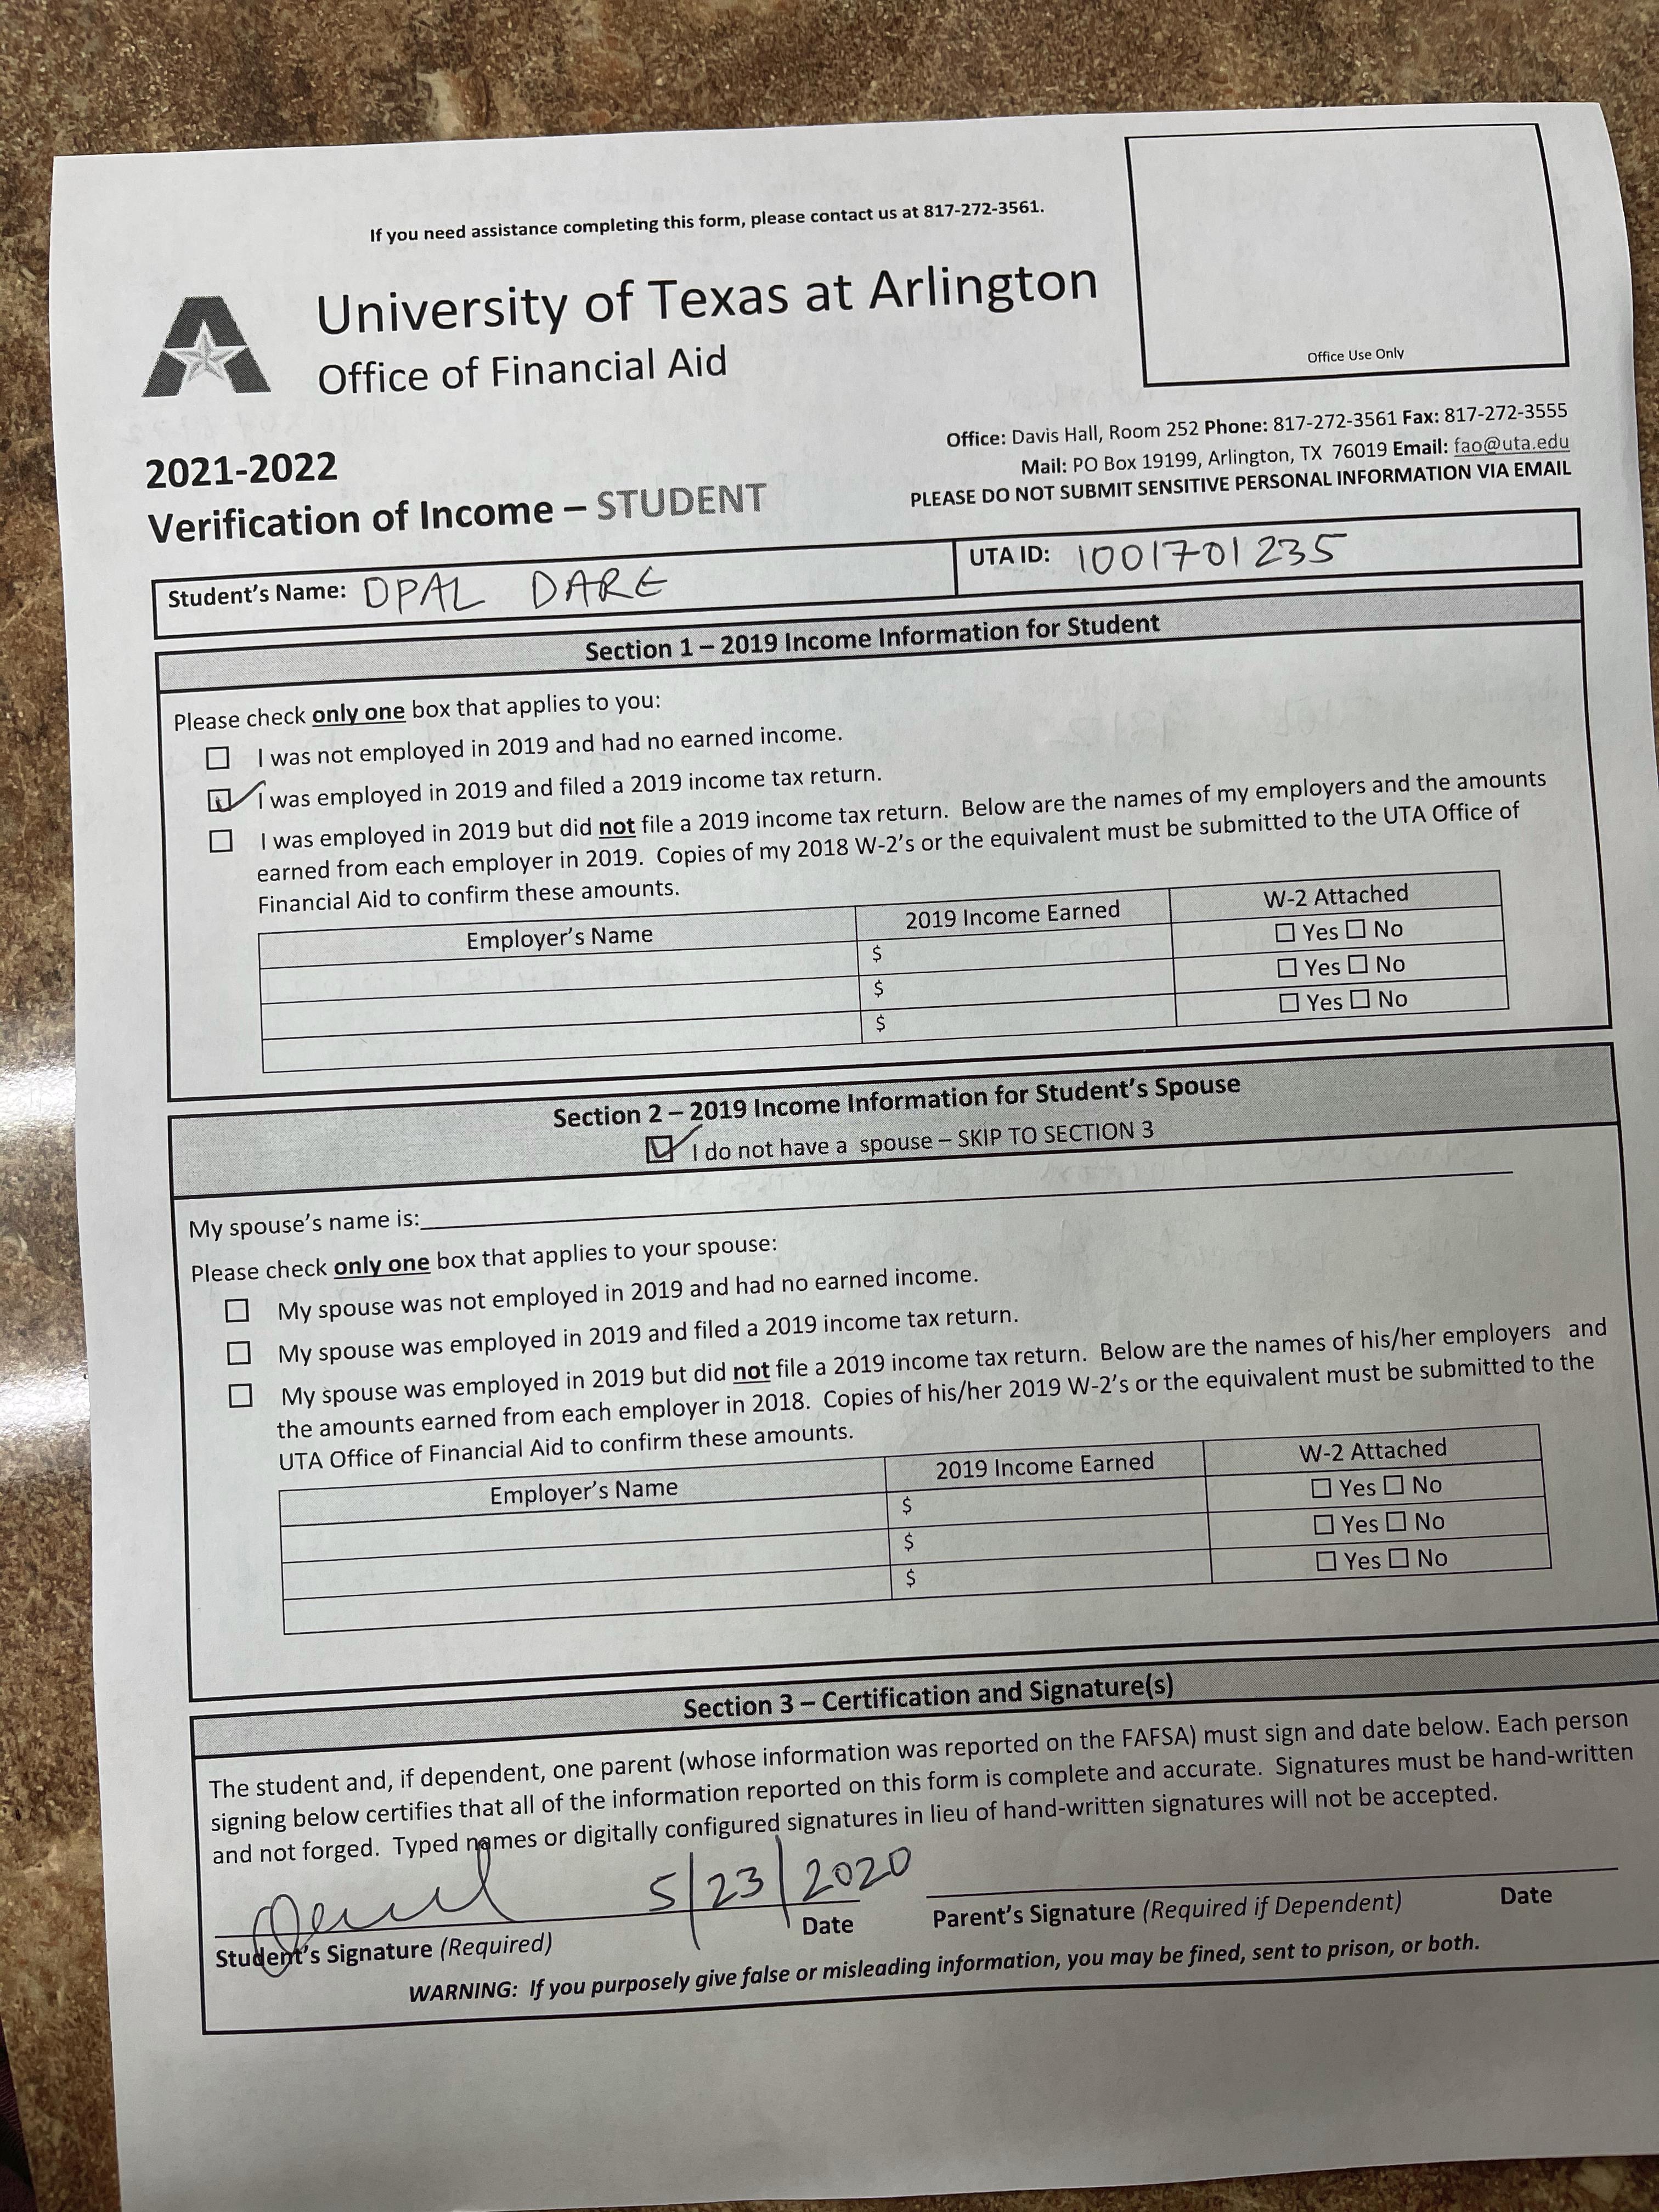 If you need assistance completing this form, please contact us at 817-272-3561.
University of Texas at Arlington
Office of Financial Aid
Office Use Only
Office: Davis Hall, Room 252 Phone: 817-272-3561 Fax: 817-272-3555
Mail: PO Box 19199, Arlington, TX 76019 Email: fao@uta.edu
PLEASE DO NOT SUBMIT SENSITIVE PERSONAL INFORMATION VIA EMAIL
2021-2022
Verification of Income – STUDENT
Student's Name: OPAL DARE UTA ID: 1001701235
Section 1 – 2019 Income Information for Student
Please check only one box that applies to you:
I was not employed in 2019 and had no earned income.
I was employed in 2019 and filed a 2019 income tax return.
I was employed in 2019 but did not file a 2019 income tax return. Below are the names of my employers and the amounts
earned from each employer in 2019. Copies of my 2018 W-2's or the equivalent must be submitted to the UTA Office of
Financial Aid to confirm these amounts.
Employer's Name 2019 Income Earned W-2 Attached
$ Yes No
$ Yes No
$ Yes No
Section 2 – 2019 Income Information for Student's Spouse
I do not have a spouse – SKIP TO SECTION 3
My spouse's name is:
Please check only one box that applies to your spouse:
My spouse was not employed in 2019 and had no earned income.
My spouse was employed in 2019 and filed a 2019 income tax return.
My spouse was employed in 2019 but did not file a 2019 income tax return. Below are the names of his/her employers and
the amounts earned from each employer in 2018. Copies of his/her 2019 W-2's or the equivalent must be submitted to the
UTA Office of Financial Aid to confirm these amounts.
Employer's Name 2019 Income Earned W-2 Attached
$ Yes No
$ Yes No
$ Yes No
Section 3 – Certification and Signature(s)
The student and, if dependent, one parent (whose information was reported on the FAFSA) must sign and date below. Each person
signing below certifies that all of the information reported on this form is complete and accurate. Signatures must be hand-written
and not forged. Typed names or digitally configured signatures in lieu of hand-written signatures will not be accepted.
5/23/2020
Student's Signature (Required) Date Parent's Signature (Required if Dependent) Date
WARNING: If you purposely give false or misleading information, you may be fined, sent to prison, or both.